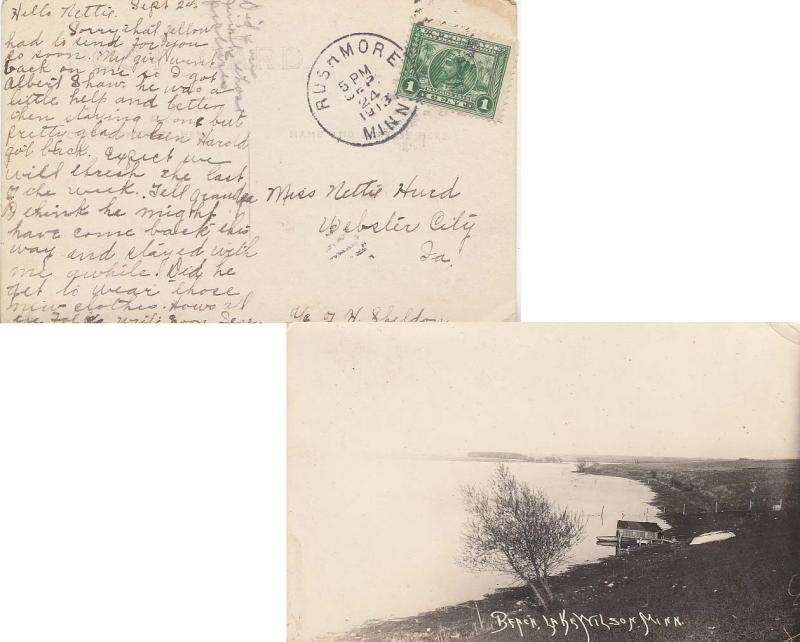 Hello Nettie. Sept 24
Sorry that fellow
had to send for you
so soon. My girl went
back on me so I got
Albert Shaw. he was a
little help and better
then staying alone but
pretty glad when Harold
got back. Expect we
will thresh the last
of the week. Tell grandpa
I think he might
have come back this
way and stayed with
me awhile. Did he
get to wear those
new clothes. Hows all
the Folks. Write soon
RUSHMORE
5 PM
SEP
24
1913
MINN.
1 CENT 1
Miss Nettie Hurd
Webster City
Ia.
c/o G H Sheldon
BEACH, LAKE WILSON, MINN.